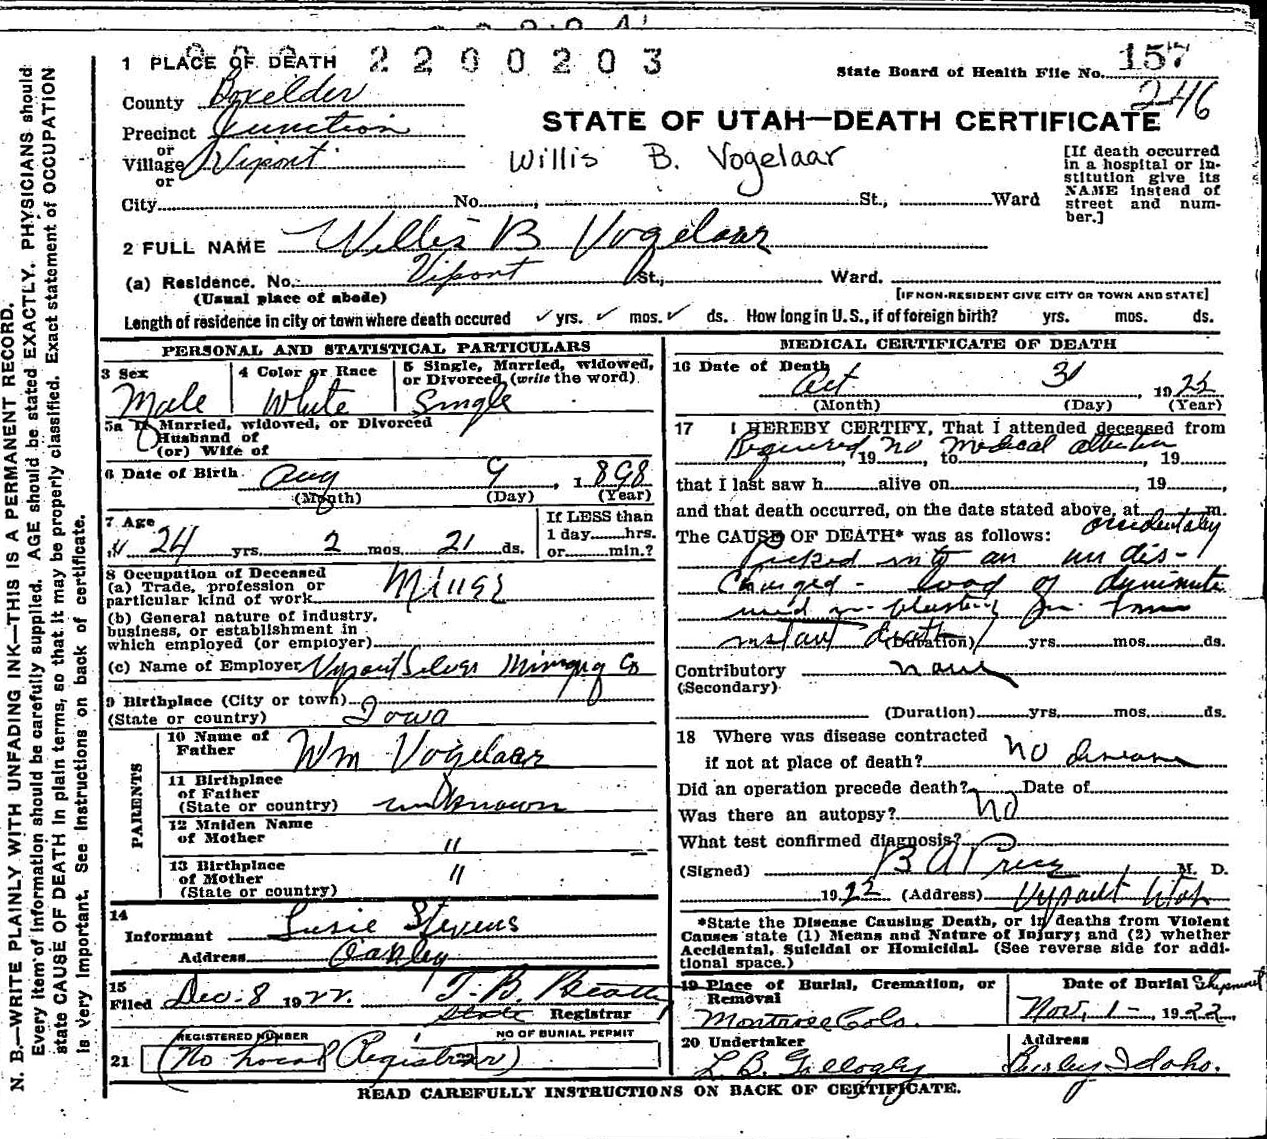 2200203
1 PLACE OF DEATH
State Board of Health File No. 157
246
County Boxelder
STATE OF UTAH—DEATH CERTIFICATE
Precinct Junction
or
Village Vipont
or
Willis B. Vogelaar
[If death occurred in a hospital or institution give its NAME instead of street and number.]
City No. St., Ward
2 FULL NAME Willis B Vogelaar
(a) Residence. No. Vipont St., Ward.
(Usual place of abode) [IF NON-RESIDENT GIVE CITY OR TOWN AND STATE]
Length of residence in city or town where death occured ✓ yrs. ✓ mos. ✓ ds. How long in U.S., if of foreign birth? yrs. mos. ds.
PERSONAL AND STATISTICAL PARTICULARS
3 Sex 4 Color or Race 5 Single, Married, widowed, or Divorced (write the word)
Male White Single
5a If Married, widowed, or Divorced
Husband of
(or) Wife of
6 Date of Birth Aug 9, 1898
(Month) (Day) (Year)
7 Age 24 yrs 2 mos. 21 ds.
If LESS than 1 day hrs. or min.?
8 Occupation of Deceased
(a) Trade, profession or particular kind of work Miner
(b) General nature of industry, business, or establishment in which employed (or employer)
(c) Name of Employer Vypont Silver Mining Co
9 Birthplace (City or town)
(State or country) Iowa
PARENTS
10 Name of Father Wm Vogelaar
11 Birthplace of Father (State or country) unknown
12 Maiden Name of Mother "
13 Birthplace of Mother (State or country) "
14
Informant Susie Stevens
Address Oakley
15
Filed Dec. 8 1922 T. B. Beatty
State Registrar
REGISTERED NUMBER NO OF BURIAL PERMIT
21 (No Local Registrar)
MEDICAL CERTIFICATE OF DEATH
16 Date of Death Oct 31 1922
(Month) (Day) (Year)
17 I HEREBY CERTIFY, That I attended deceased from
Required, 19 no, to medical attention, 19
that I last saw h alive on, 19,
and that death occurred, on the date stated above, at m.
The CAUSE OF DEATH* was as follows: accidentaly
Picked into an undis-
charged - load of dynimite
used in blasting
instant death (Duration) yrs. mos. ds.
Contributory none
(Secondary)
(Duration) yrs. mos. ds.
18 Where was disease contracted
if not at place of death? no disease
Did an operation precede death? Date of
Was there an autopsy? No
What test confirmed diagnosis?
(Signed) B A M. D.
1922 (Address) Vypont Utah
*State the Disease Causing Death, or in deaths from Violent Causes state (1) Means and Nature of Injury; and (2) whether Accidental, Suicidal or Homicidal. (See reverse side for additional space.)
19 Place of Burial, Cremation, or Removal Date of Burial Shipment
Montrose Colo. Nov, 1 - 1922
20 Undertaker Address
L. B. Gillogly Burley Idaho.
READ CAREFULLY INSTRUCTIONS ON BACK OF CERTIFICATE.
N. B.—WRITE PLAINLY WITH UNFADING INK—THIS IS A PERMANENT RECORD.
Every item of information should be carefully supplied. AGE should be stated EXACTLY. PHYSICIANS should
state CAUSE OF DEATH in plain terms, so that it may be properly classified. Exact statement of OCCUPATION
is very important. See instructions on back of certificate.